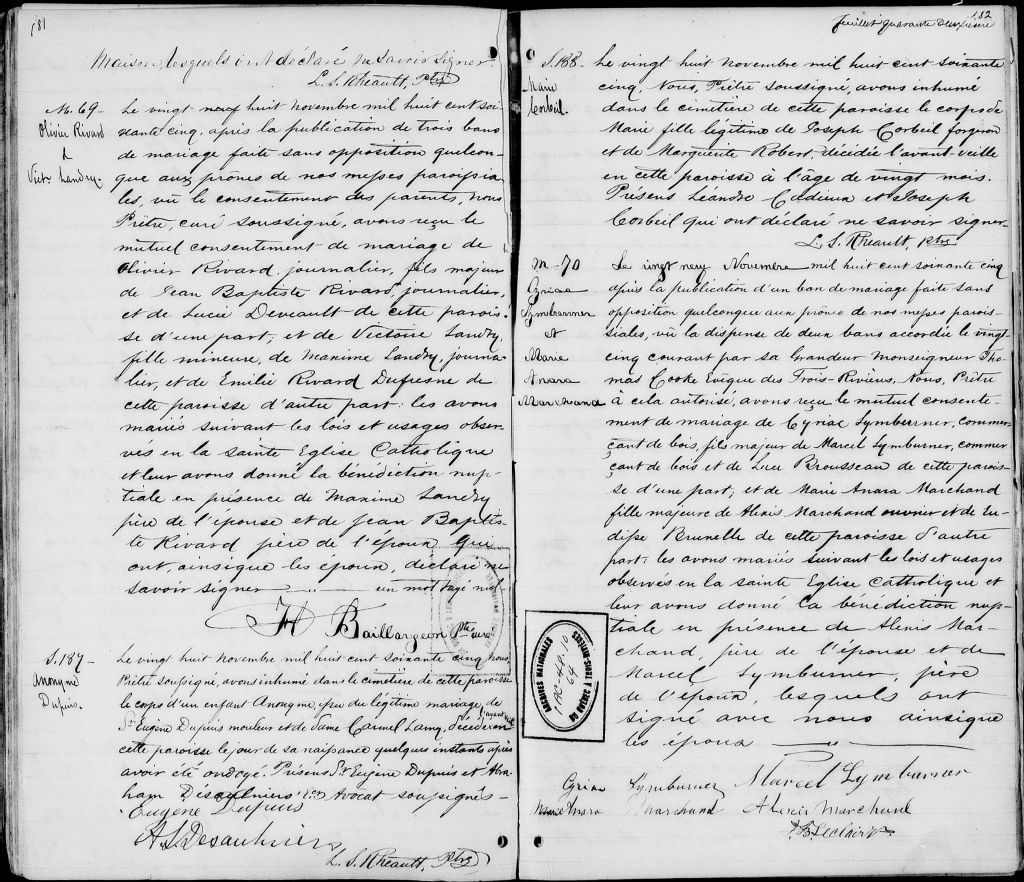 181
Maison lesquels ont déclaré ne savoir signer.
L. S. Rhéault, Ptre
M. 69-
Olivier Rivard
&
Vict. Landry.
Le vingt neuf huit Novembre mil huit cent soi-
xante cinq, après la publication de trois bans
de mariage faite sans opposition quelcon-
que aux prônes de nos messes paroissia-
les, vû le consentement des parents, nous
Prêtre, curé soussigné, avons reçu le
mutuel consentement de mariage de
Olivier Rivard, journalier, fils majeur
de Jean Baptiste Rivard, journalier,
et de Lucie Deveault de cette parois-
se d'une part; et de Victoire Landry,
fille mineure, de Maxime Landry, journa-
lier, et de Emilie Rivard Dufresne de
cette paroisse d'autre part: les avons
mariés suivant les lois et usages obser-
vés en la sainte Eglise Catholique
et leur avons donné la bénédiction nup-
tiale en présence de Maxime Landry
père de l'épouse et de Jean Baptis-
te Rivard père de l'époux qui
ont, ainsi que les époux, déclaré ne
savoir signer un mot rayé nul
Baillargeon Ptre curé
S. 187-
Anonyme
Dupuis.
Le vingt huit Novembre mil huit cent soixante cinq, Nous,
Prêtre soussigné, avons inhumé dans le cimetière de cette paroisse
le corps d'un enfant Anonyme, issu du légitime mariage, de
Sr Eugène Dupuis mouleur et de Dame Carmel Lamy, décédé en
cette paroisse le jour de sa naissance quelques instants après
avoir été ondoyé. Présens Sr Eugène Dupuis et Abra-
ham Désaulniers Ecr Avocat soussignés-
Eugène Dupuis
A. L. Desaulniers
L. S. Rhéault, Ptre
182
feuillet quarante deuxième
S. 188.
Marie
Corbeil
Le vingt huit Novembre mil huit cent soixante
cinq, Nous, Prêtre soussigné, avons inhumé
dans le cimetière de cette paroisse le corps de
Marie fille légitime de Joseph Corbeil forgeron
et de Marguerite Robert, décédée l'avant-veille
en cette paroisse à l'âge de vingt mois.
Présens Léandre Cadieux et Joseph
Corbeil qui ont déclaré ne savoir signer
L. S. Rhéault, Ptre
M-70
Cyriac
Lymburner
et
Marie
Anara
Marchand
Le vingt neuf Novembre mil huit cent soixante cinq
après la publication d'un ban de mariage faite sans
opposition quelconque aux prône de nos messes parois-
siales, vû la dispense de deux bans accordée le vingt
cinq courant par sa Grandeur Monseigneur Tho-
mas Cooke Evêque des Trois-Rivières, Nous, Prêtre
à cela autorisé, avons reçu le mutuel consente-
ment de mariage de Cyriac Lymburner, commer-
çant de bois, fils majeur de Marcel Lymburner, commer-
çant de bois et de Luce Brousseau de cette parois-
se d'une part; et de Marie Anara Marchand
fille majeure de Alexis Marchand ouvrier et de Eu-
disse Brunelle de cette paroisse d'autre
part: les avons mariés suivant les lois et usages
observés en la sainte Eglise Catholique et
leur avons donné la bénédiction nup-
tiale en présence de Alexis Mar-
chand, père de l'épouse et de
Marcel Lymburner, père
de l'époux lesquels ont
signé avec nous ainsi que
les époux
Cyriac Lymburner Marcel Lymburner
Marie Anara Marchand Alexis Marchand
J. B. Leclair Ptr
ARCHIVES NATIONALES
DU QUÉBEC À TROIS-RIVIÈRES